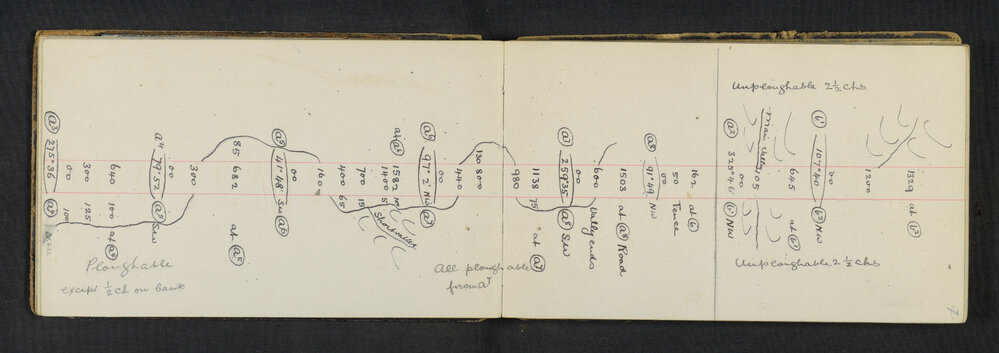 a³
275°36
00
300
640
a⁴
00
100
125
100
at a⁴
a⁴
79°52
00
300
a⁵ SW
85
682
at a⁵
a⁵
41°48'
00
160
SW a⁶
400
65
700
15
1400
1582
at a⁶
Short valley
a⁶
97°2' NW
00
440
a⁷
130
800
980
1138
75
at a⁷
a⁷
259°35
00
600
a⁸ SW
Valley ends
1503
at a⁸ Road
a⁸
91°49 NW
00
50
Fence
162
at b
Ploughable
except ½ ch on bank
All ploughable
from a⁷
Unploughable 2½ chs
a²
325°46
00
b¹ NW
105
Main Valley
645
at b¹
b¹
107°40
00
b² NW
1200
1329
at b²
Unploughable 2½ chs
7